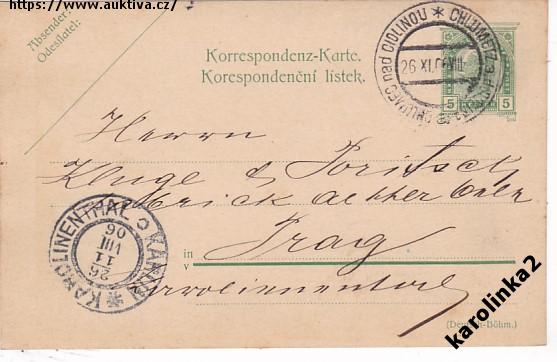 https://www.auktiva.cz/
Absender:
Odesílatel:
Korrespondenz-Karte.
Korespondenční lístek.
CHLUMETZ a. d. CIDLINA * CHLUMEC nad CIDLINOU *
26 XI 06 VIII
5 5
Herrn
Kluge &
Prag
in
v
Karolinenthal
KAROLINENTHAL KARLÍN *
26
11
VIII
06
(Deutsch-Böhm.)
karolinka2